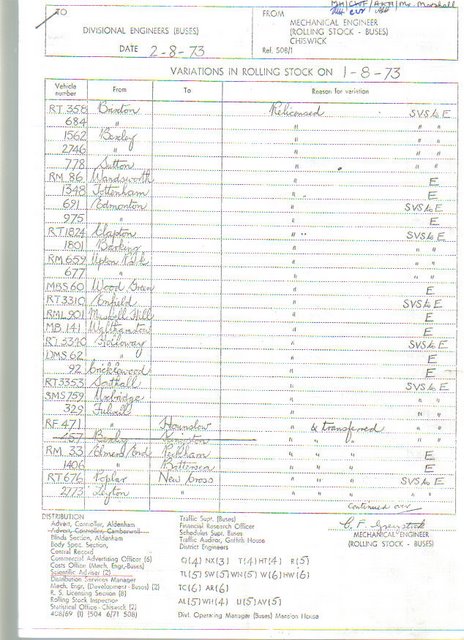 TO
FROM
DIVISIONAL ENGINEERS (BUSES)
MECHANICAL ENGINEER
(ROLLING STOCK - BUSES)
CHISWICK
DATE 2-8-73
Ref. 508/1
VARIATIONS IN ROLLING STOCK ON 1-8-73
Vehicle number From To Reason for variation
RT 358 Brixton Relicensed SVS to E
684 " " " "
1562 Bexley " " "
2746 " " " "
778 Sutton " " "
RM 86 Wandsworth " E
1348 Tottenham " E
691 Edmonton " SVS to E
975 " " E
RT 1824 Clapton " SVS to E
1801 Barking " " "
RM 659 Upton Park " " "
677 " " " "
MBS 60 Wood Green " E
RT 3310 Enfield " SVS to E
RML 901 Muswell Hill " E
MB 141 Walthamstow " E
RT 3390 Holloway " SVS to E
DMS 62 " " E
92 Cricklewood " E
RT 3353 Southall " SVS to E
SMS 759 Uxbridge " " "
329 Fulwell " " "
RF 471 Hounslow " & transferred " "
457 Bexley Kingston " " " " "
RM 33 Elmers End Peckham " " " E
1406 " Battersea " " " E
RT 676 Poplar New Cross " " " SVS to E
2773 Leyton " " " " " "
Continued over
C. F. Greystock
MECHANICAL ENGINEER
(ROLLING STOCK - BUSES)
DISTRIBUTION
Advert. Controller, Aldenham
Advert. Controller, Camberwell
Blinds Section, Aldenham
Body Spec. Section,
Central Record
Commercial Advertising Officer (6)
Costs Office (Mech. Engr.-Buses)
Scientific Adviser (2)
Distribution Services Manager
Mech. Engr. (Development - Buses) (2)
R. S. Licensing Section (8)
Rolling Stock Inspection
Statistical Office - Chiswick (2)
Traffic Supt. (Buses)
Financial Research Officer
Schedules Supt. Buses
Traffic Auditor, Griffith House
District Engineers
Q(4) NX(3) T(4) HT(4) R(5)
TL(5) SW(5) WH(5) W(6) HW(6)
TC(6) AR(6)
AL(5) WH(4) U(5) AV(5)
Divl. Operating Manager (Buses) Mansion House